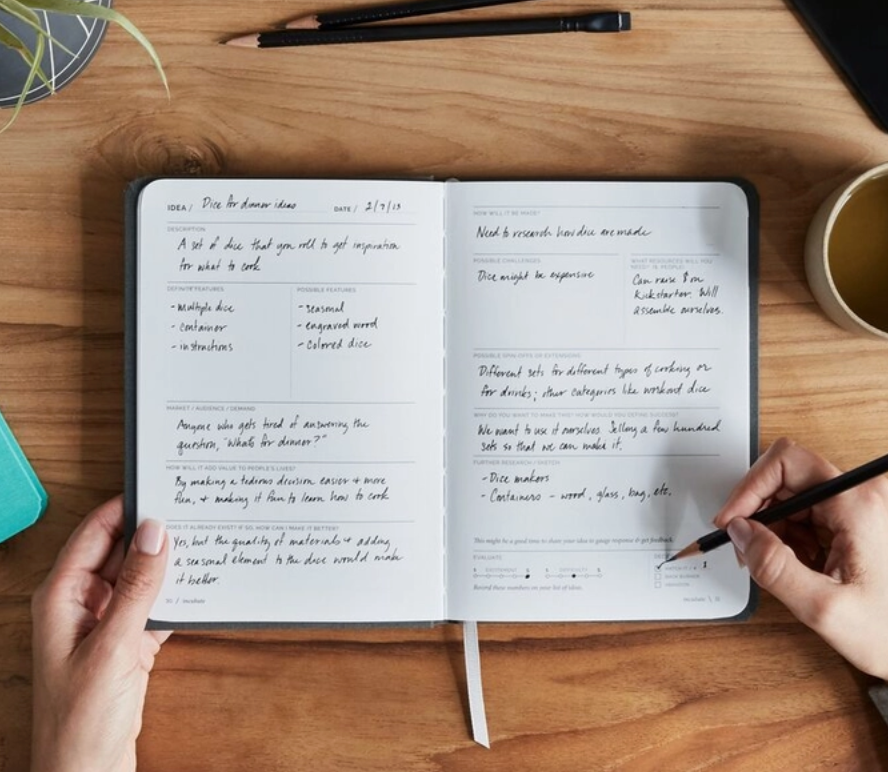 IDEA / Dice for dinner ideas
DATE / 2/7/13
DESCRIPTION
A set of dice that you roll to get inspiration
for what to cook
DEFINITE FEATURES
- multiple dice
- container
- instructions
POSSIBLE FEATURES
- seasonal
- engraved wood
- colored dice
MARKET / AUDIENCE / DEMAND
Anyone who gets tired of answering the
question, "What's for dinner?"
HOW WILL IT ADD VALUE TO PEOPLE'S LIVES?
By making a tedious decision easier + more
fun, + making it fun to learn how to cook
DOES IT ALREADY EXIST? IF SO, HOW CAN I MAKE IT BETTER?
Yes, but the quality of materials + adding
a seasonal element to the dice would make
it better.
/ incubate
HOW WILL IT BE MADE?
Need to research how dice are made
POSSIBLE CHALLENGES
Dice might be expensive
WHAT RESOURCES WILL YOU
NEED? PEOPLE?
Can raise $ on
Kickstarter. Will
assemble ourselves.
POSSIBLE SPIN-OFFS OR EXTENSIONS
Different sets for different types of cooking or
for drinks; other categories like workout dice
WHY DO YOU WANT TO MAKE THIS? HOW WOULD YOU DEFINE SUCCESS?
We want to use it ourselves. Selling a few hundred
sets so that we can make it.
FURTHER RESEARCH / SKETCH
- Dice makers
- Containers - wood, glass, bag, etc.
This might be a good time to share your idea to gauge response & get feedback.
EVALUATE
EXCITEMENT
DIFFICULTY
BACK BURNER
Record these numbers on your list of ideas.
incubate \